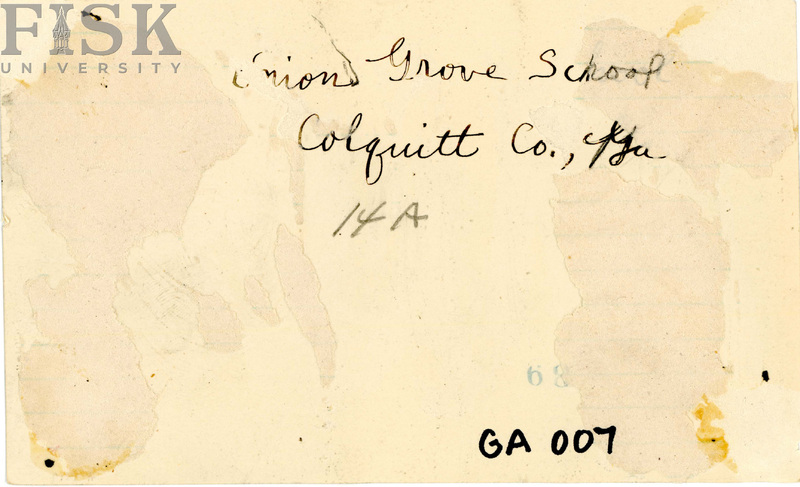 FISK
UNIVERSITY
Union Grove School
Colquitt Co., Ga
14 A
68
GA 007